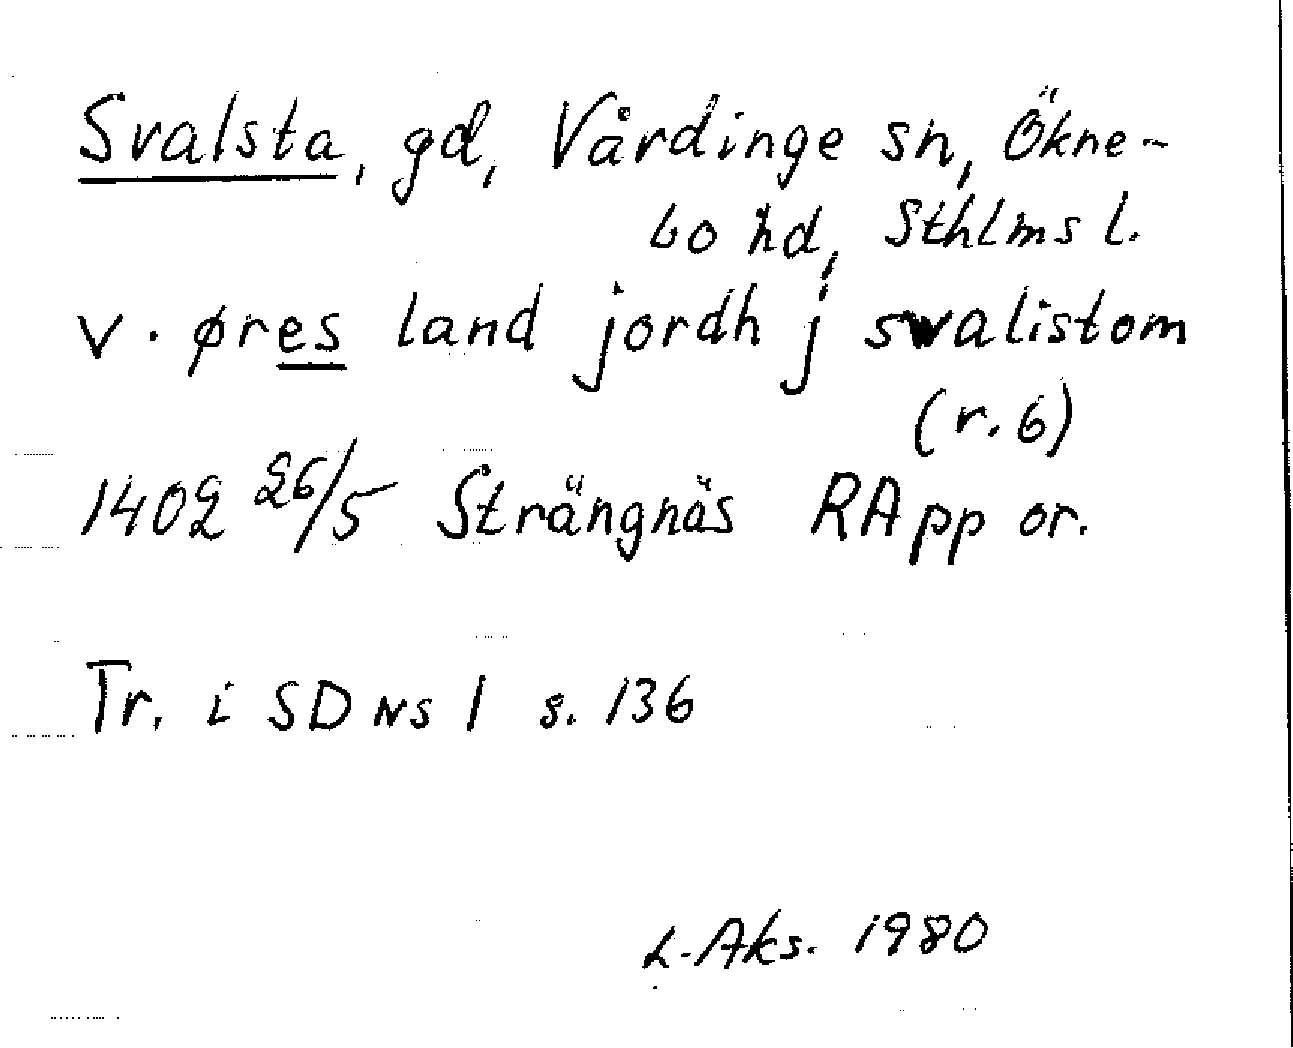 Svalsta, gd, Vårdinge sn, Ökne-
bo hd, Sthlms l.
v. øres land jordh j svalistom
(r. 6)
1402 26/5 Strängnäs RApp or.
Tr. i SD NS 1 s. 136
L. Aks. 1980